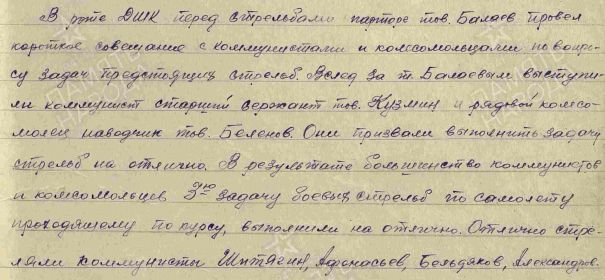 В роте ДШК перед стрельбами парторг тов. Балаев провел
короткое совещание с коммунистами и комсомольцами по вопро-
су задач предстоящих стрельб. Вслед за т. Балаевым выступи-
ли коммунист старший сержант тов. Кузмин и рядовой комсо-
молец наводчик тов. Беленов. Они призвали выполнить задачу
стрельб на отлично. В результате большинство коммунистов
и комсомольцев 2ю задачу боевых стрельб по самолету
проходящему по курсу, выполнили на отлично. Отлично стре-
ляли коммунисты Шитягин, Афонасьев, Бельдяков, Александров.